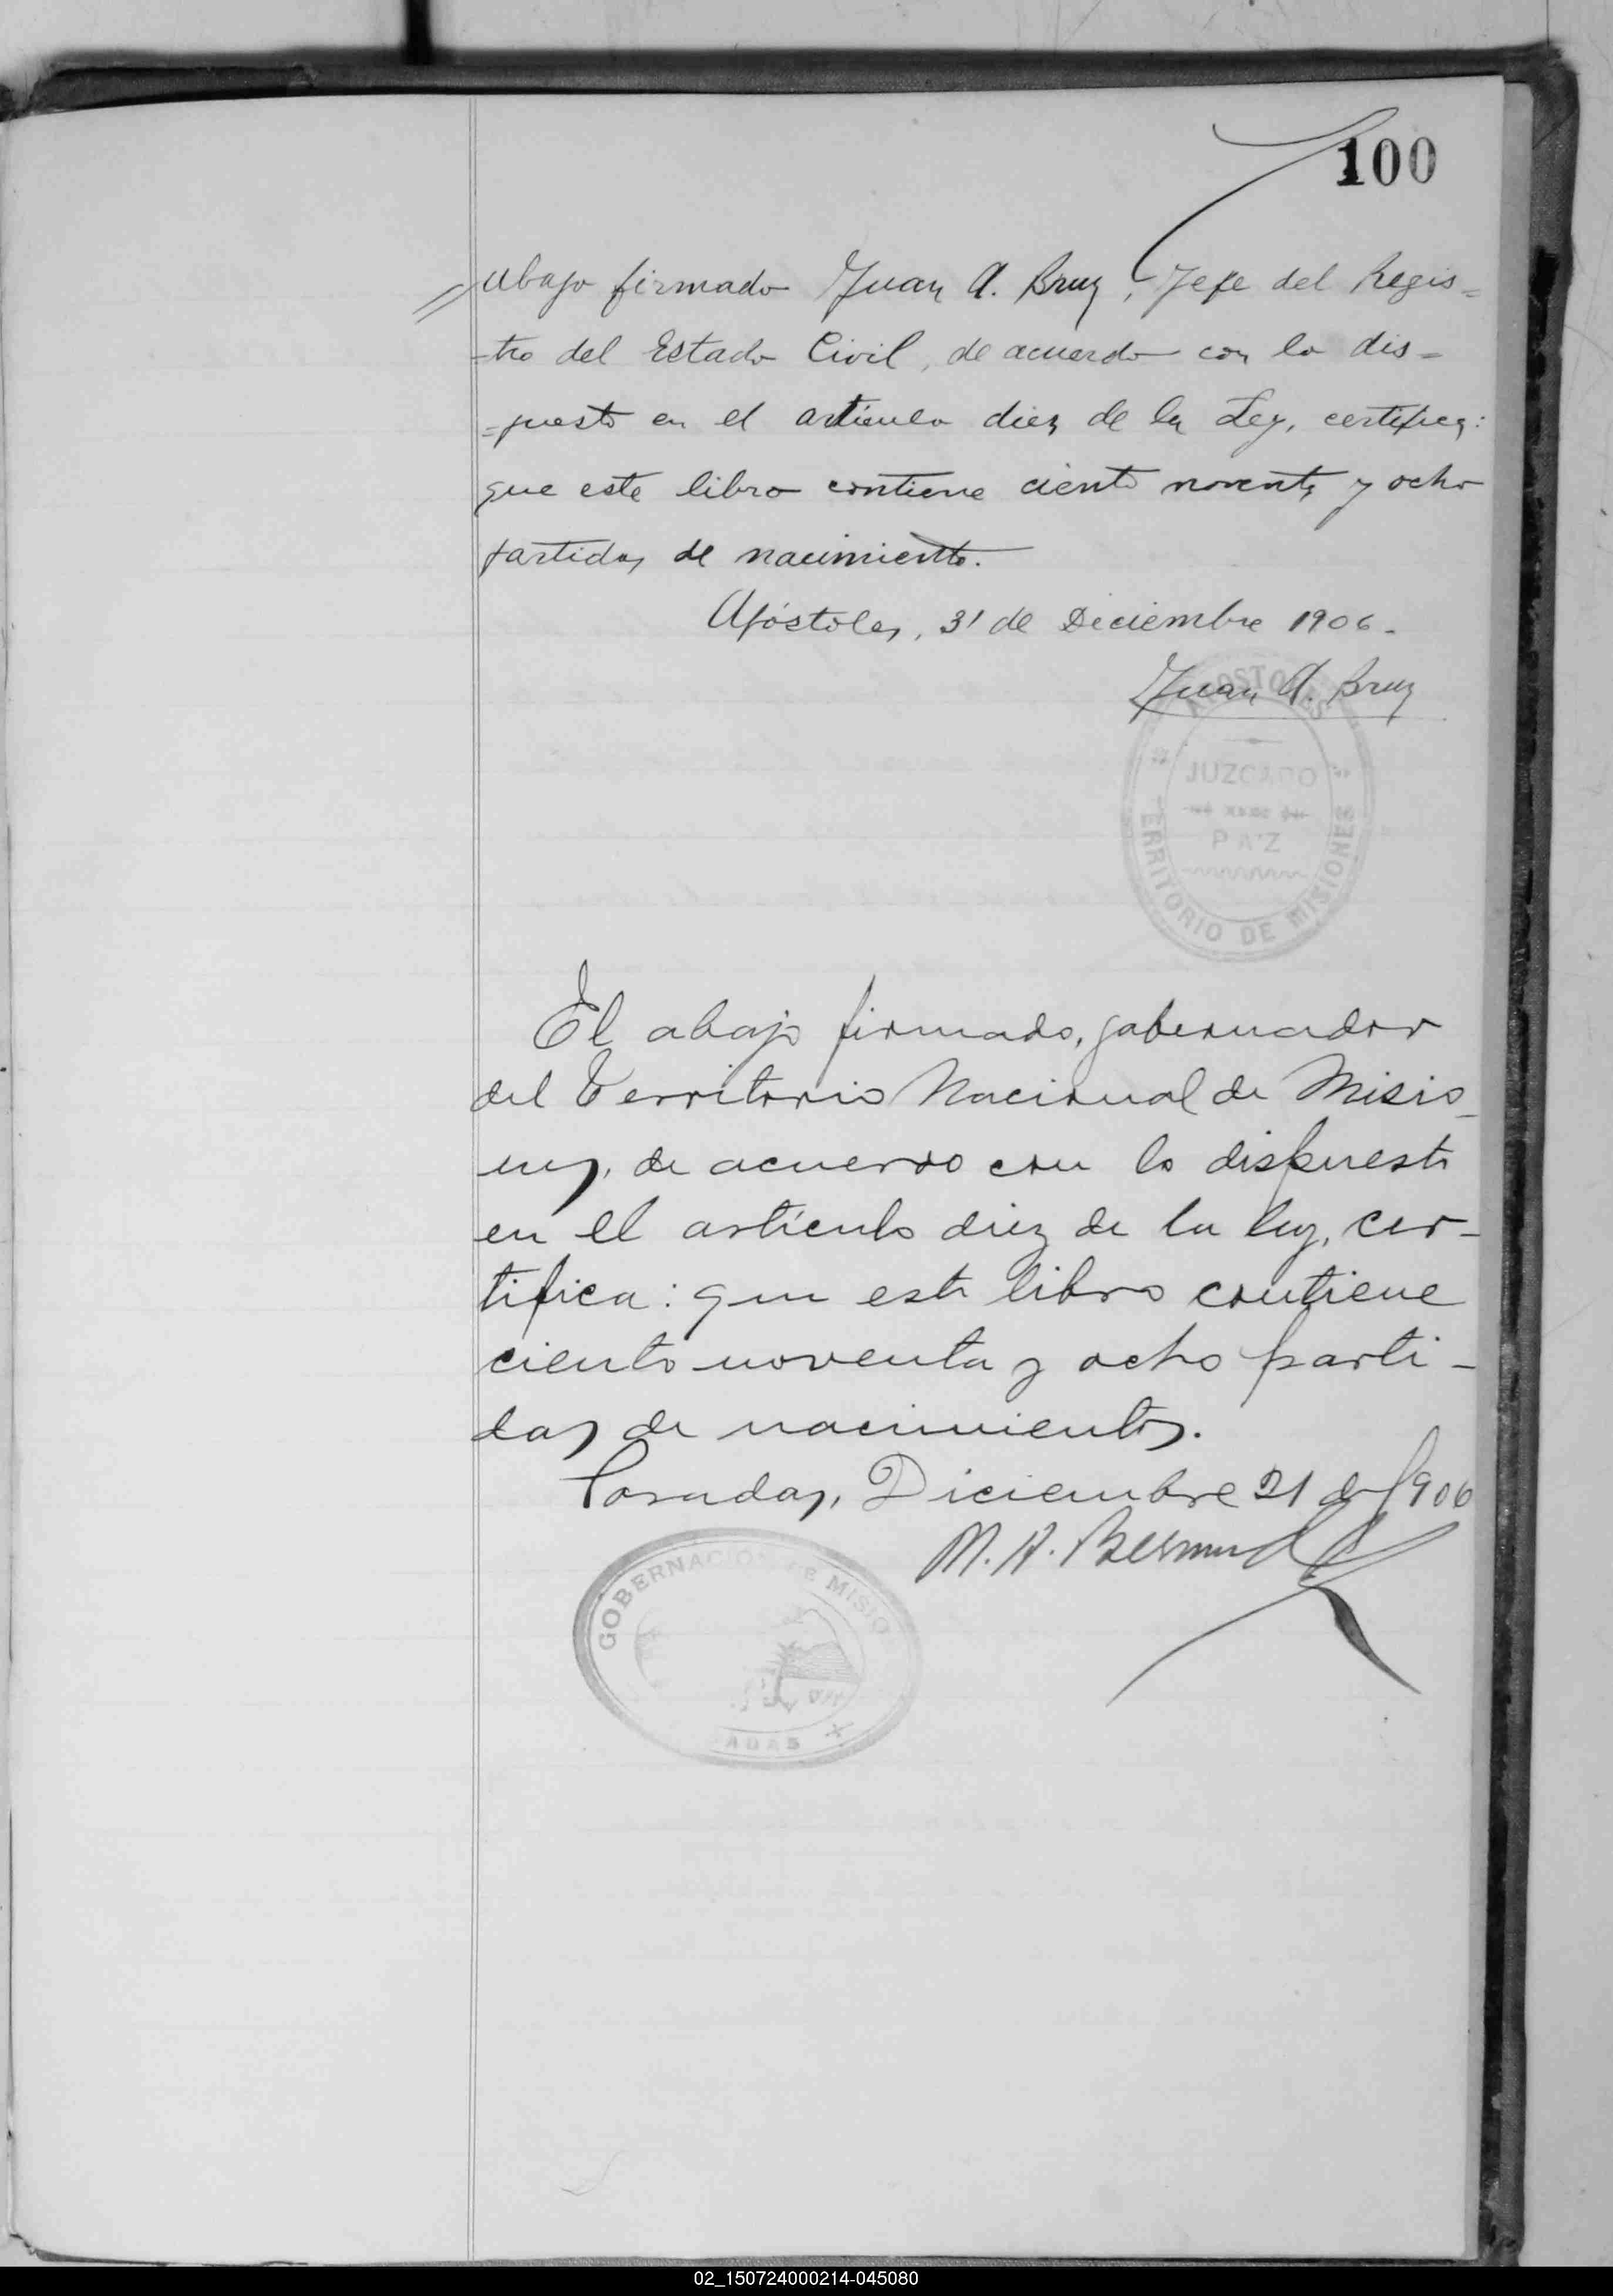 100
abajo firmado Juan A. Bruz, Jefe del Regis=
=tro del Estado Civil, de acuerdo con lo dis=
=puesto en el artículo diez de la Ley, certifica:
que este libro contiene ciento noventa y ocho
partidas de nacimiento.
Apóstoles, 31 de Diciembre 1906.
Juan A. Bruz
APOSTOLES
JUZGADO
PAZ
TERRITORIO DE MISIONES
El abajo firmado, gobernador
del Territorio Nacional de Misio_
nes, de acuerdo con lo dispuesto
en el artículo diez de la ley, cer-
tifica: que este libro contiene
ciento noventa y ocho parti-
das de nacimientos.
Posadas, Diciembre 31 de 1906
GOBERNACION DE MISIO
ADAS
02_150724000214-045080